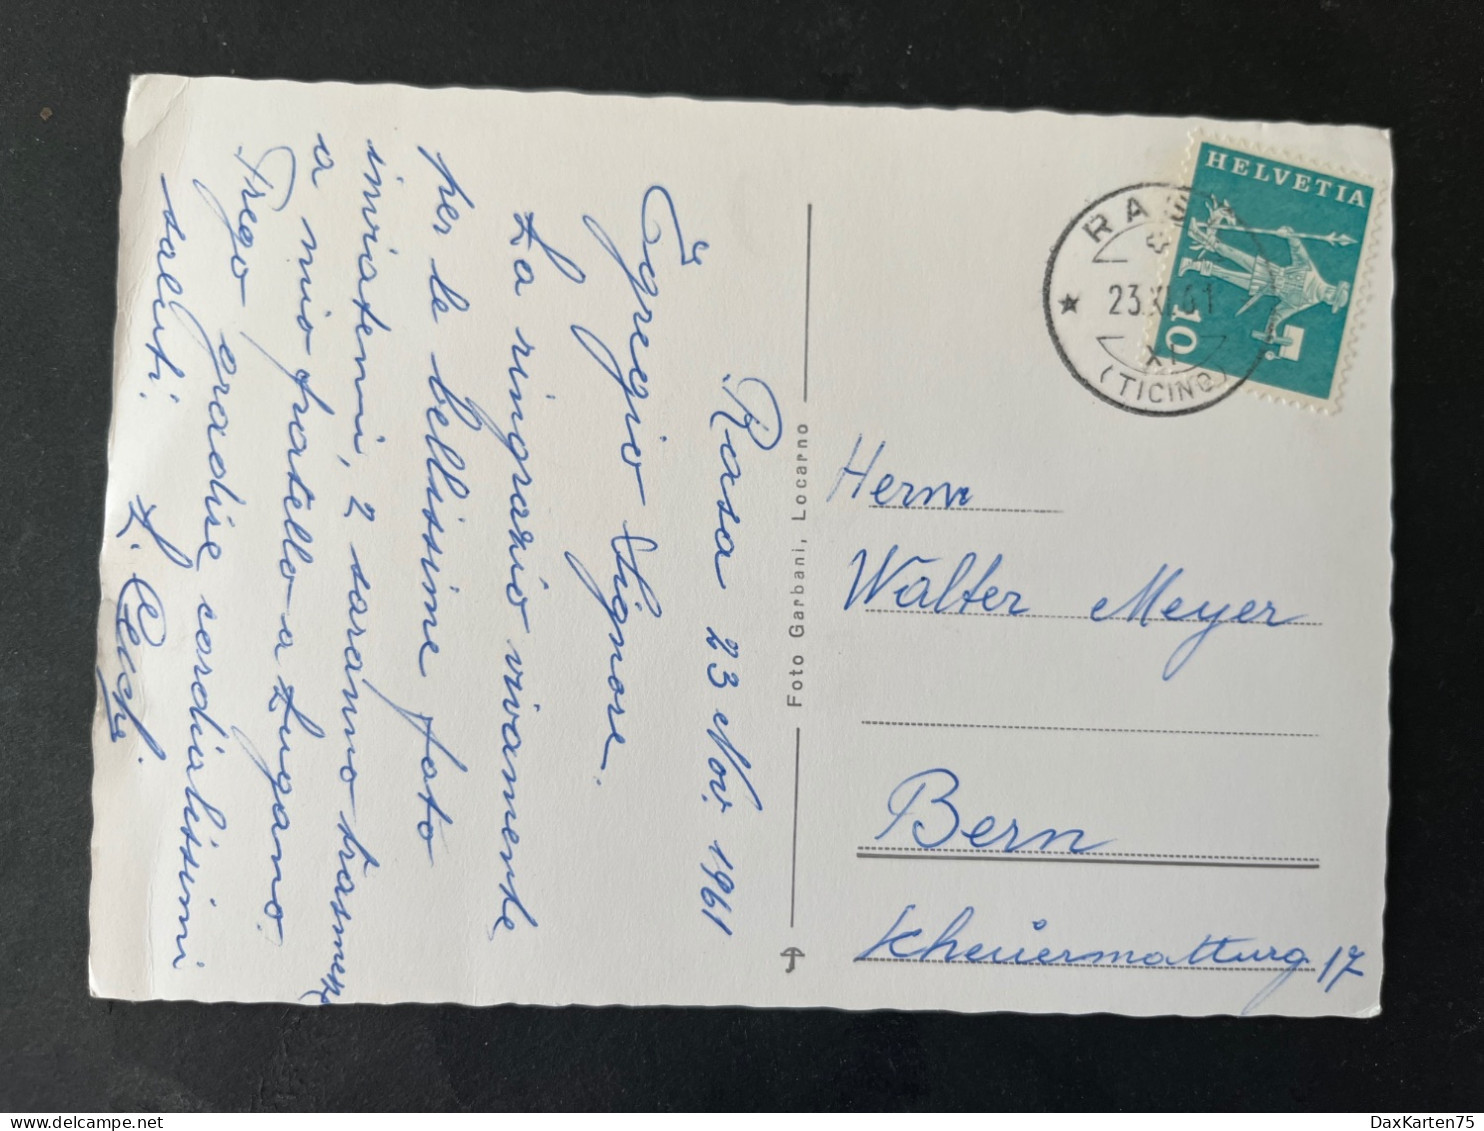 Rasa 23 Nov. 1961
Egregio Signore.
La ringrazio vivamente
per le bellissime foto
inviatemi, 2 saranno trasmesse
a mio fratello a Lugano.
Prego gradire cordialissimi
saluti.
Foto Garbani, Locarno
HELVETIA
10
RASA
23.XI.61
XI
(TICINO)
Herrn
Walter Meyer
Bern
Scheuermattweg 17
DaxKarten75